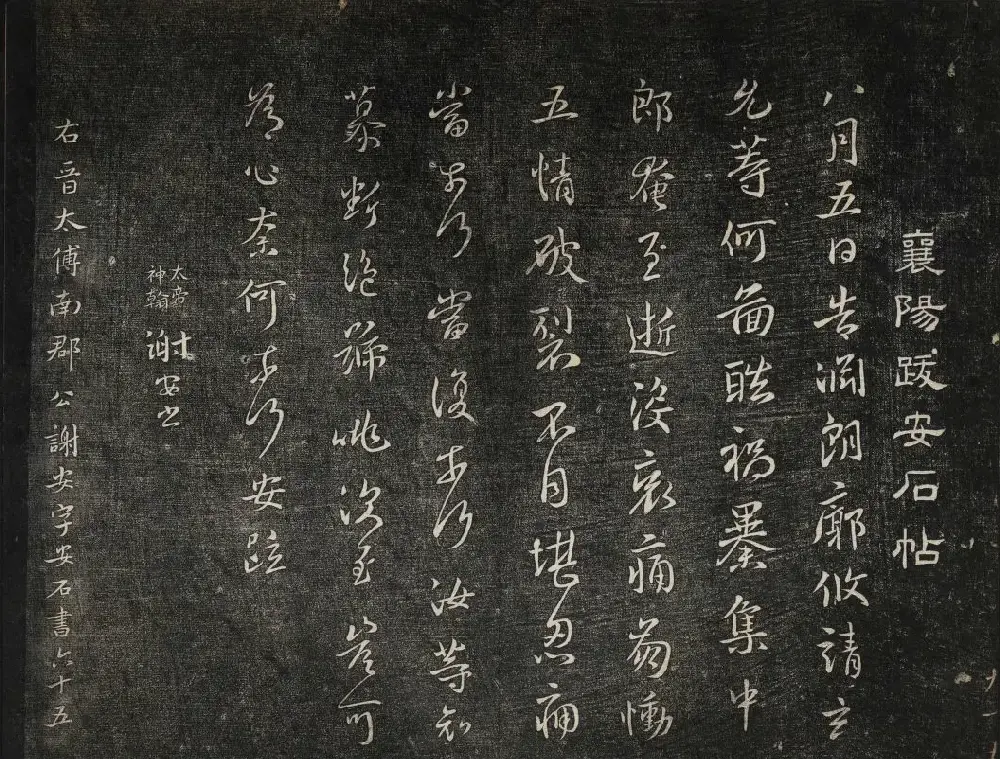 襄陽跋安石帖
八月五日告淵朗廓攸靖玄
允等何圖酷禍暴集中
郎奄至逝沒哀痛崩慟
五情破裂不自堪忍痛
當奈何當復奈何汝等哀
慕斷絕號咷深至豈可
為心奈何奈何安疏
太帝
神翰
謝安書
右晉太傅南郡公謝安字安石書六十五